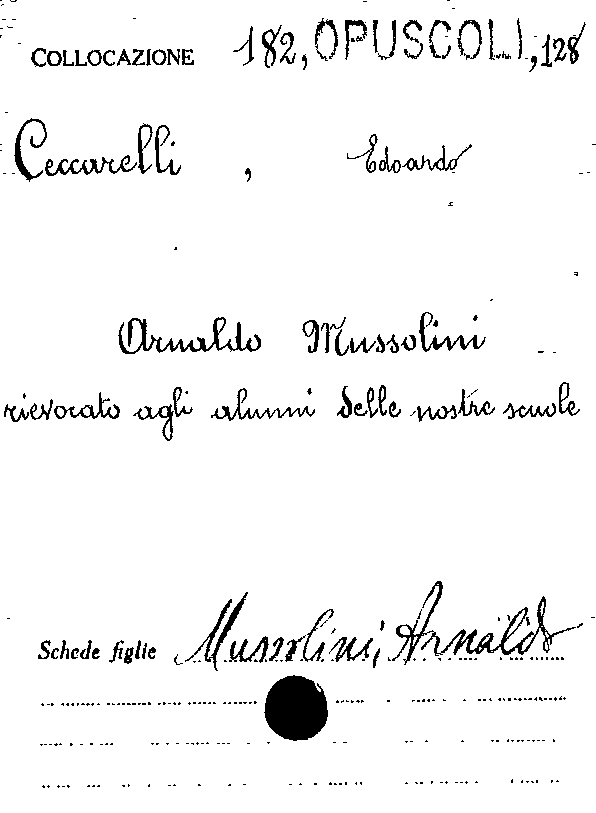 COLLOCAZIONE 182, OPUSCOLI, 128
Ceccarelli, Edoardo
Arnaldo Mussolini
rievocato agli alunni delle nostre scuole
Schede figlie Mussolini, Arnaldo